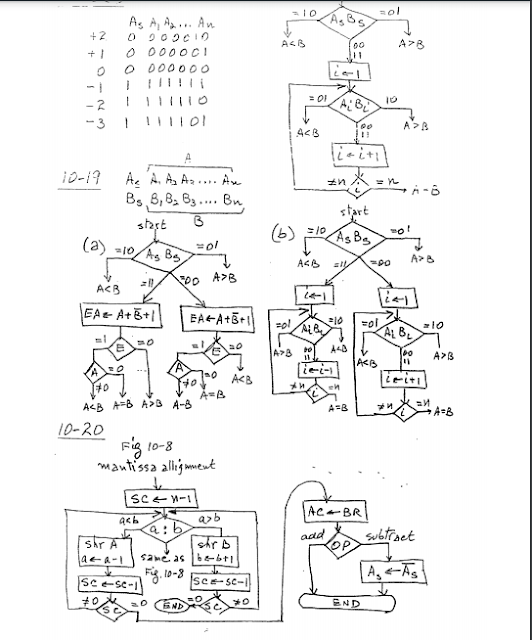 As A1 A2 ... An
+2 0 000010
+1 0 000001
0 0 000000
-1 1 111111
-2 1 111110
-3 1 111101
=10 As Bs =01
A<B A>B
00
11
i←1
=01 Ai Bi 10
A<B A>B
00
11
i←i+1
≠n i =n A=B
A
10-19 As A1 A2 A3 .... An
Bs B1 B2 B3 .... Bn
B
start
(a) =10 As Bs =01
A<B =11 =00 A>B
EA←A+B̅+1 EA←A+B̅+1
=1 E =0 =1 E =0
A =0 A =0 A<B
≠0 ≠0 A=B
A<B A=B A>B A-B
start
(b) =10 As Bs =01
A<B =11 =00 A>B
i←1 i←1
=01 Ai Bi =10 =01 Ai Bi =10
A>B 00 A<B A<B 00 A>B
11 11
i←i-1 i←i+1
≠n i =n ≠n i =n A=B
A=B
10-20
Fig 10-8
mantissa allignment
SC ← n-1
a<b a:b a>b
shr A same as shr B
a←a-1 Fig. 10-8 b←b+1
SC←SC-1 SC←SC-1
≠0 SC =0 END =0 SC ≠0
AC←BR
add OP subtract
As←A̅s
END